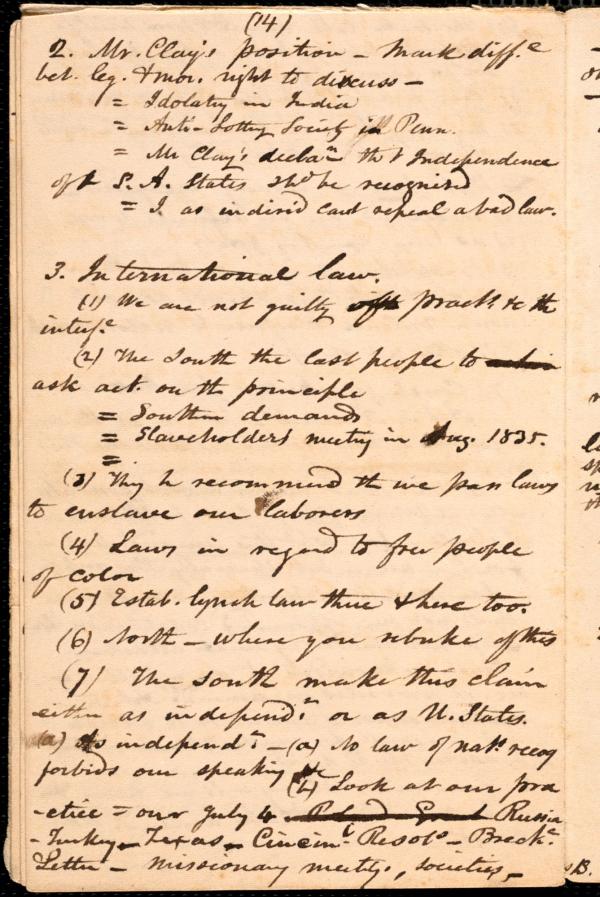 (14)
2. Mr. Clay's position – Mark diff.e
bet. leg. & mor. right to discuss –
= Idolatry in India
= Anti-Lottery Society in Penn.
= Mr Clay's declan tht Independence
of S. A. States shd be recognized
= I. as individ cant repeal a bad law.
3. International law.
(1) We are not guilty practl &c th
interf.e
(2) The South the last people to
ask act. on th principle
= Southern demands
= Slaveholders' meeting in Aug. 1835.
=
(3) They h recommend th we pass laws
to enslave our laborers
(4) Laws in regard to free people
of color
(5) Estab. lynch law there & here too.
(6) North – where you rebuke of this
(7) The South make this claim
either as independ.t or as U. States.
(a) As independ.t – (a) No law of natns recog
forbids our speaking (b) Look at our pra
-ctice = our July 4 Russia
- Turkey – Texas – Cincin.ti Resols – Breck.e
Letter – missionary meetgs, societies, –